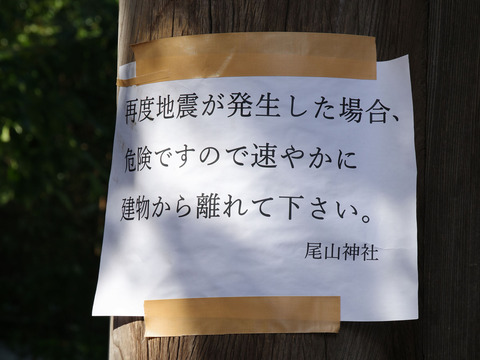 再度地震が発生した場合、
危険ですので速やかに
建物から離れて下さい。
尾山神社